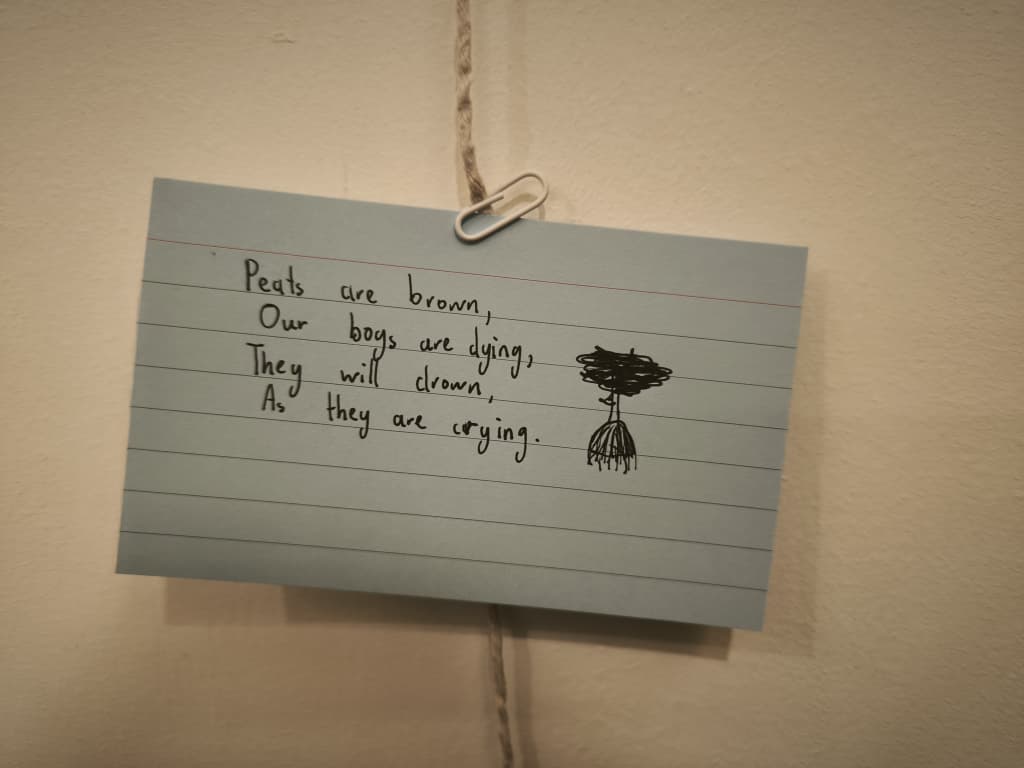 Peats are brown,
Our boys are dying,
They will drown,
As they are crying.